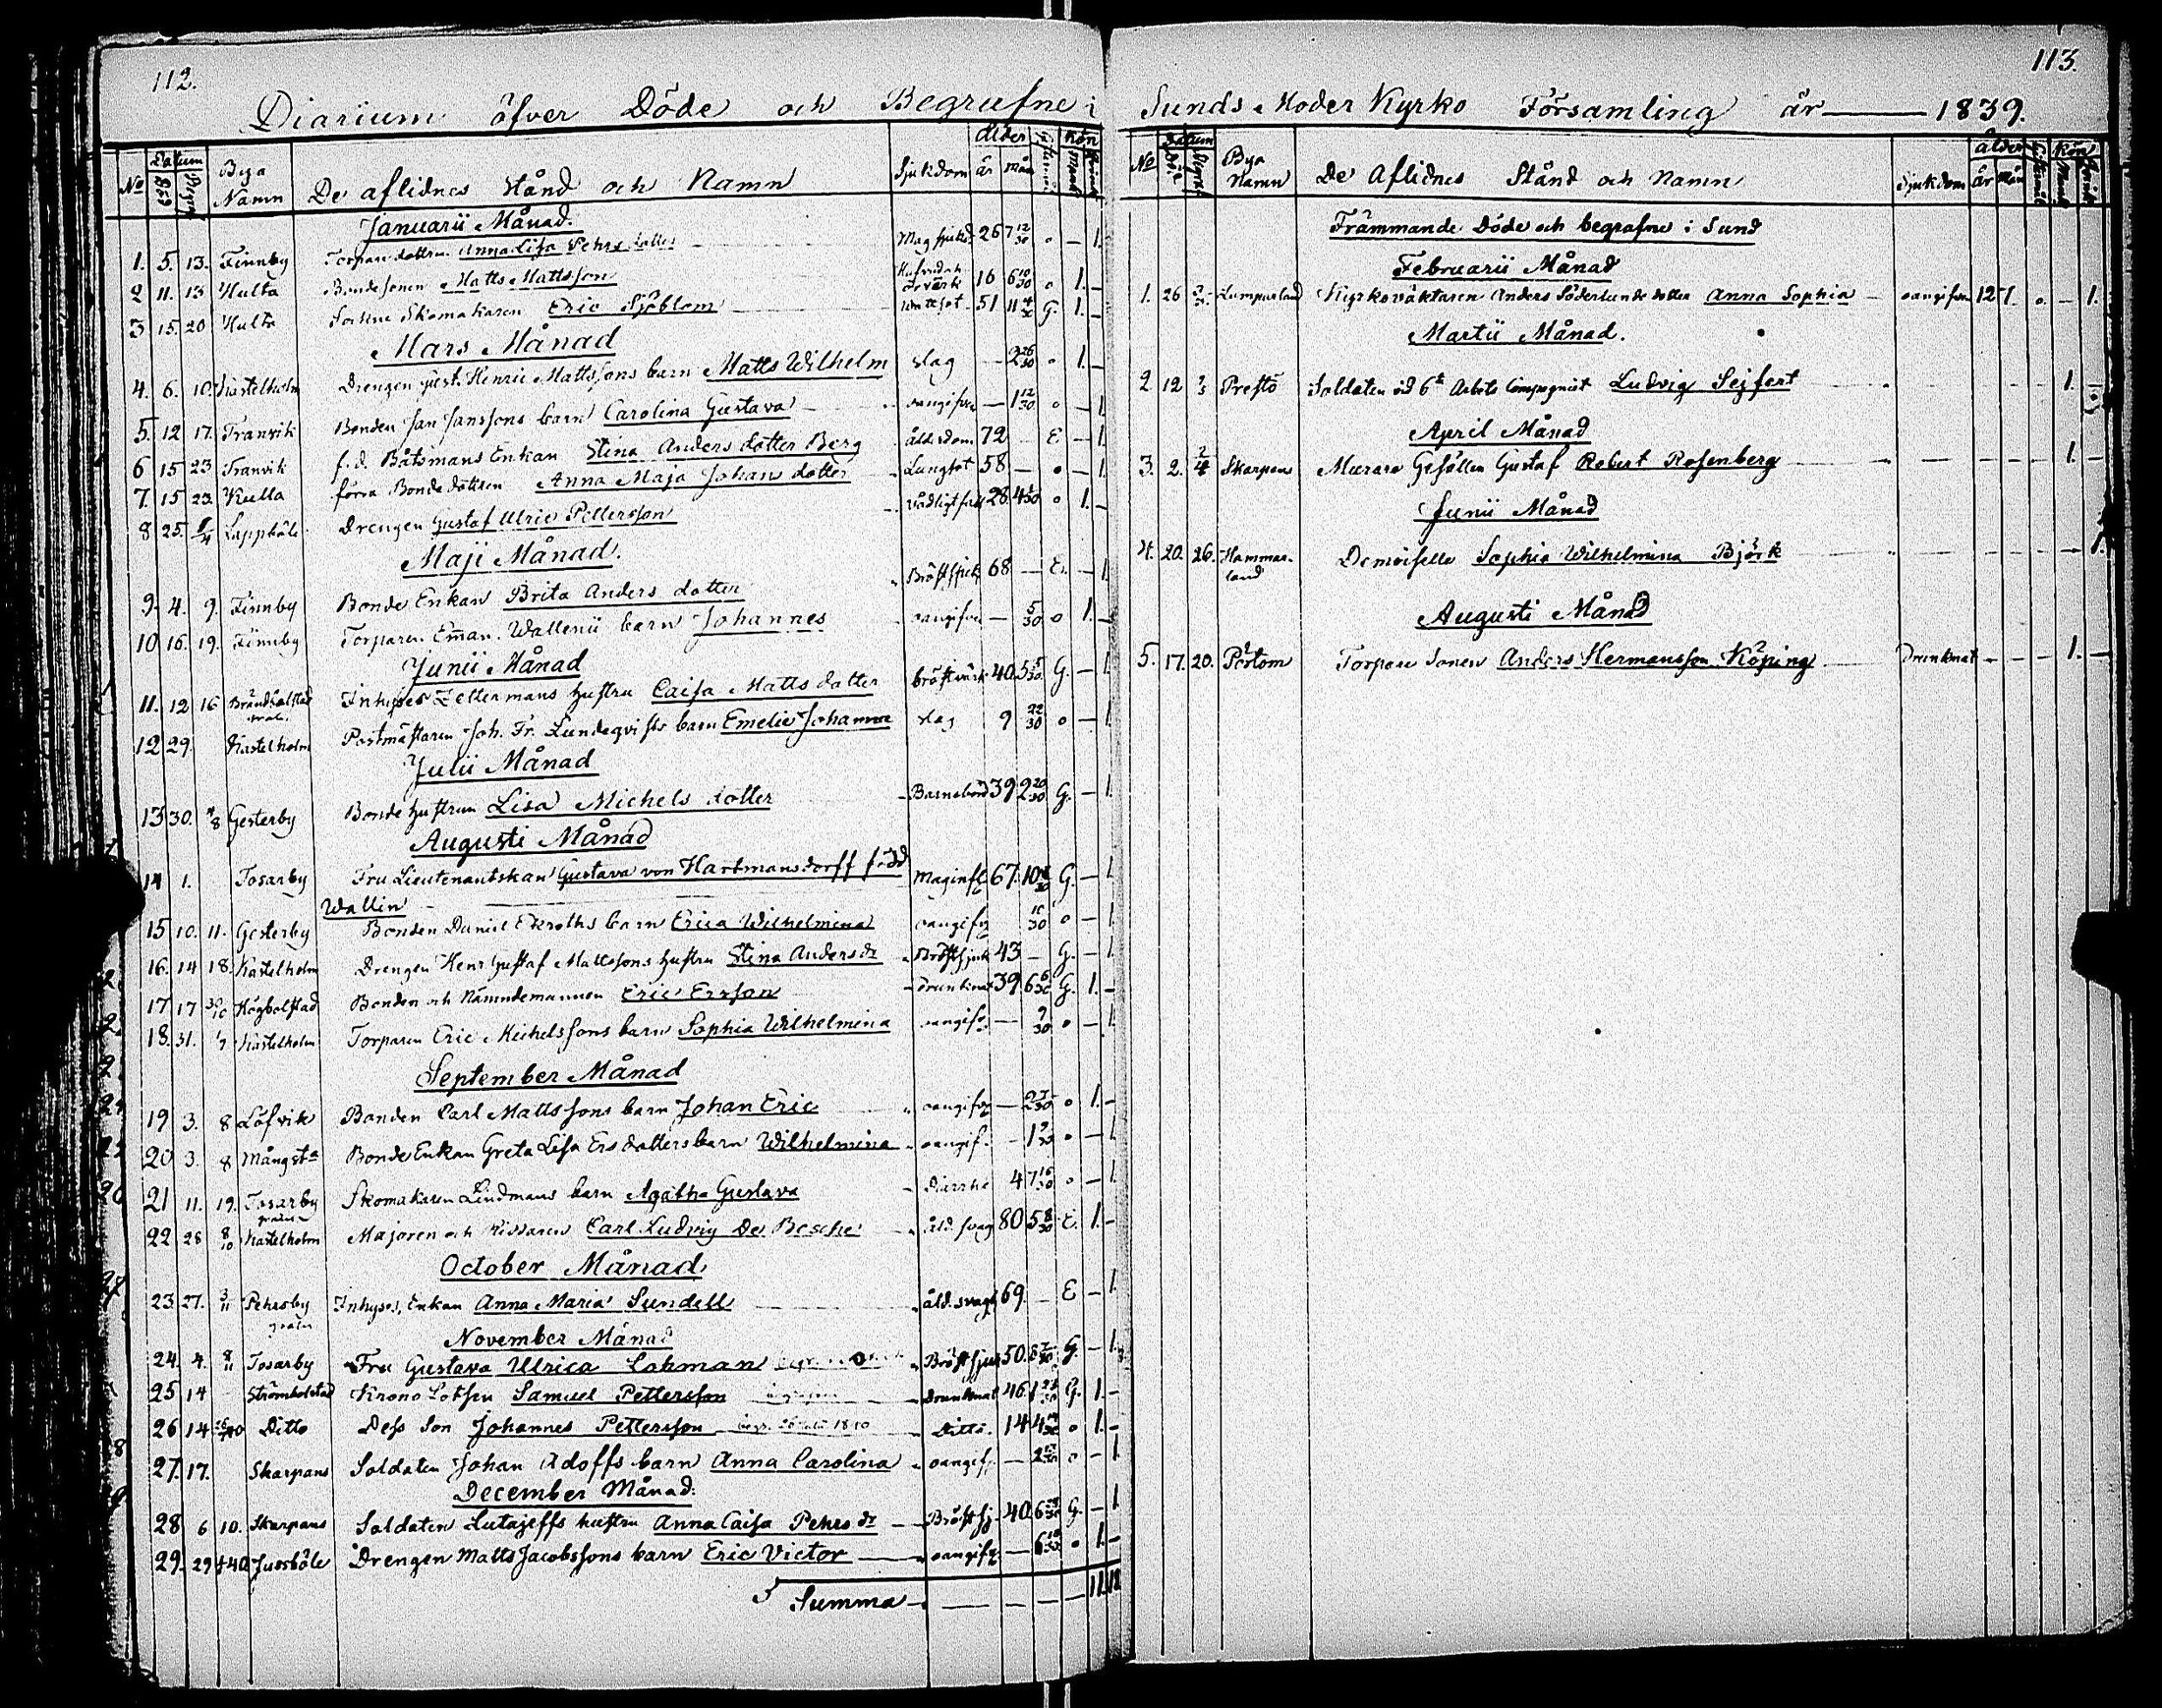 112.
Diarium öfver Döde och Begrafne i
No Datum Död Begr. Bya Namn De aflidnes Stånd och Namn Sjukdom ålder år Mån Kön Mank. Qvink.
Januarii Månad.
1. 5. 13. Finnby Torpare dottren Anna Lisa Pehrs dotter Mag sjukd. 26 7 12/30 o — 1.
2 11. 13 Hulta Bonde sonen Matts Mattsson 16 6 10/30 o 1. —
3 15. 20 Hulta Skomakaren Eric Sjöblom Wattsot 51 11 4/30 G. 1. —
Mars Månad
4. 6. 10. Kastelholm Drengen Gust. Henric Mattssons barn Matts Wilhelm slag — 2 26/30 o 1. —
5. 12 17. Tranvik Bonden Jan Janssons barn Carolina Gustava oangifven — 1 12/30 o — 1
6 15 23 Tranvik f. d. Båtsmans Enkan Stina Anders dotter Berg ålderdom 72 — E — 1.
7. 15 23. Kulla förra Bonde dottren Anna Maja Johans dotter Lungsot 58 — o — 1.
8 25. Lappböle Drengen Gustaf Ulric Pettersson vådligt fall 28. 4 o 1. —
Maji Månad.
9. 4. 9. Finnby Bonde Enkan Brita Anders dotter Bröstsjuk 68 — E. — 1
10 16. 19. Finnby Torparen Eman. Wallenii barn Johannes oangifven — 5/30 o 1. —
Junii Månad
11. 12 16 Brändbolstad Inhyses Zettermans hustru Caisa Matts dotter bröstvärk 40. 5 G. — 1
12 29. Kastelholm Postmästaren Joh. Fr. Lundeqvists barn Emelie Johanna slag 9 22/30 o — 1
Julii Månad
13 30. 4/8 Gesterby Bonde hustrun Lisa Michels dotter Barnsbörd 39 2 20/30 G. — 1
Augusti Månad
14 1. Tosarby Fru Lieutenantskan Gustava von Hartmansdorff född Maginfl. 67. 10 G. — 1
Wallin
15 10. 11. Gesterby Bonden Daniel Ekroths barn Erica Wilhelmina oangifv. 10/30 o — 1.
16. 14 18. Kastelholm Drengen Henr Gustaf Mattssons hustru Stina Anders dr Bröstsjuk 43 — G. — 1.
17 17 30/10 Högbolstad Bonden och Nämndemannen Eric Ersson Drunknat 39 6 6/30 G. 1. —
18. 31. Kastelholm Torparen Eric Michelssons barn Sophia Wilhelmina oangifv. — 9/30 o — 1.
September Månad
19 3. 8 Löfvik Bonden Carl Mattssons barn Johan Eric oangifv. — 2 o 1. —
20 3. 8 Mångsta Bonde Enkan Greta Lisa Ers dotters barn Wilhelmina oangif. — 1 o — 1.
21 11. 19. Tosarby Skomakaren Lindmans barn Agatha Gustava Diarrhé 4 7 16/30 o — 1.
22 28 8/10 Kastelholm Majoren och Riddaren Carl Ludvig De Besche åld. svag 80 5 8/30 E. 1. —
October Månad
23. 27. 3/11 Pehrsby Inhyses Enkan Anna Maria Sundell åld. svagh 69. — E — 1.
November Månad
24. 4. 8/11 Tosarby Fru Gustava Ulrica Lohman Bröstsjuk 50. G. — 1.
25 14 — Strömbolstad Krono Lotsen Samuel Pettersson Drunknat 46. 1 G. 1. —
26 14 Ditto Dess Son Johannes Pettersson Ditto. 14 4 o 1. —
27. 17. Skarpans Soldaten Johan Adoffs barn Anna Carolina oangif. — 2 o — 1.
December Månad.
28 6 10. Skarpans Soldaten Lutajeffs hustru Anna Caisa Pehrs dr Bröstsj. 40. 6 G. — 1.
29. 29 Jussböle Drengen Matts Jacobssons barn Eric Victor oangifv. — 6 o 1. —
Summa — — — 11. 18
113.
Sunds Moder Kyrko Församling år — 1839.
No Datum Död Begraf. Bya Namn De Aflidnes Stånd och Namn Sjukdom ålder år Mån Kön Mank. Qvink.
Främmande Döde och begrafne i Sund
Februarii Månad
1. 26 Lumparland Kyrkoväktaren Anders Söderlunds dotter Anna Sophia oangifven 12 7 o. — 1.
Martii Månad.
2 12 Prestö Soldaten vid 6te Arbets Compagniet Ludvig Sejfert 1. —
April Månad
3. 2. Skarpans Murare Gesällen Gustaf Robert Rosenberg 1. —
Junii Månad
4. 20. 26. Hammarland Demoiselle Sophia Wilhelmina Björk — 1.
Augusti Månad
5. 17. 20. Pörtom Torpare Sonen Anders Hermansson Köping Drunknat — — — 1. —